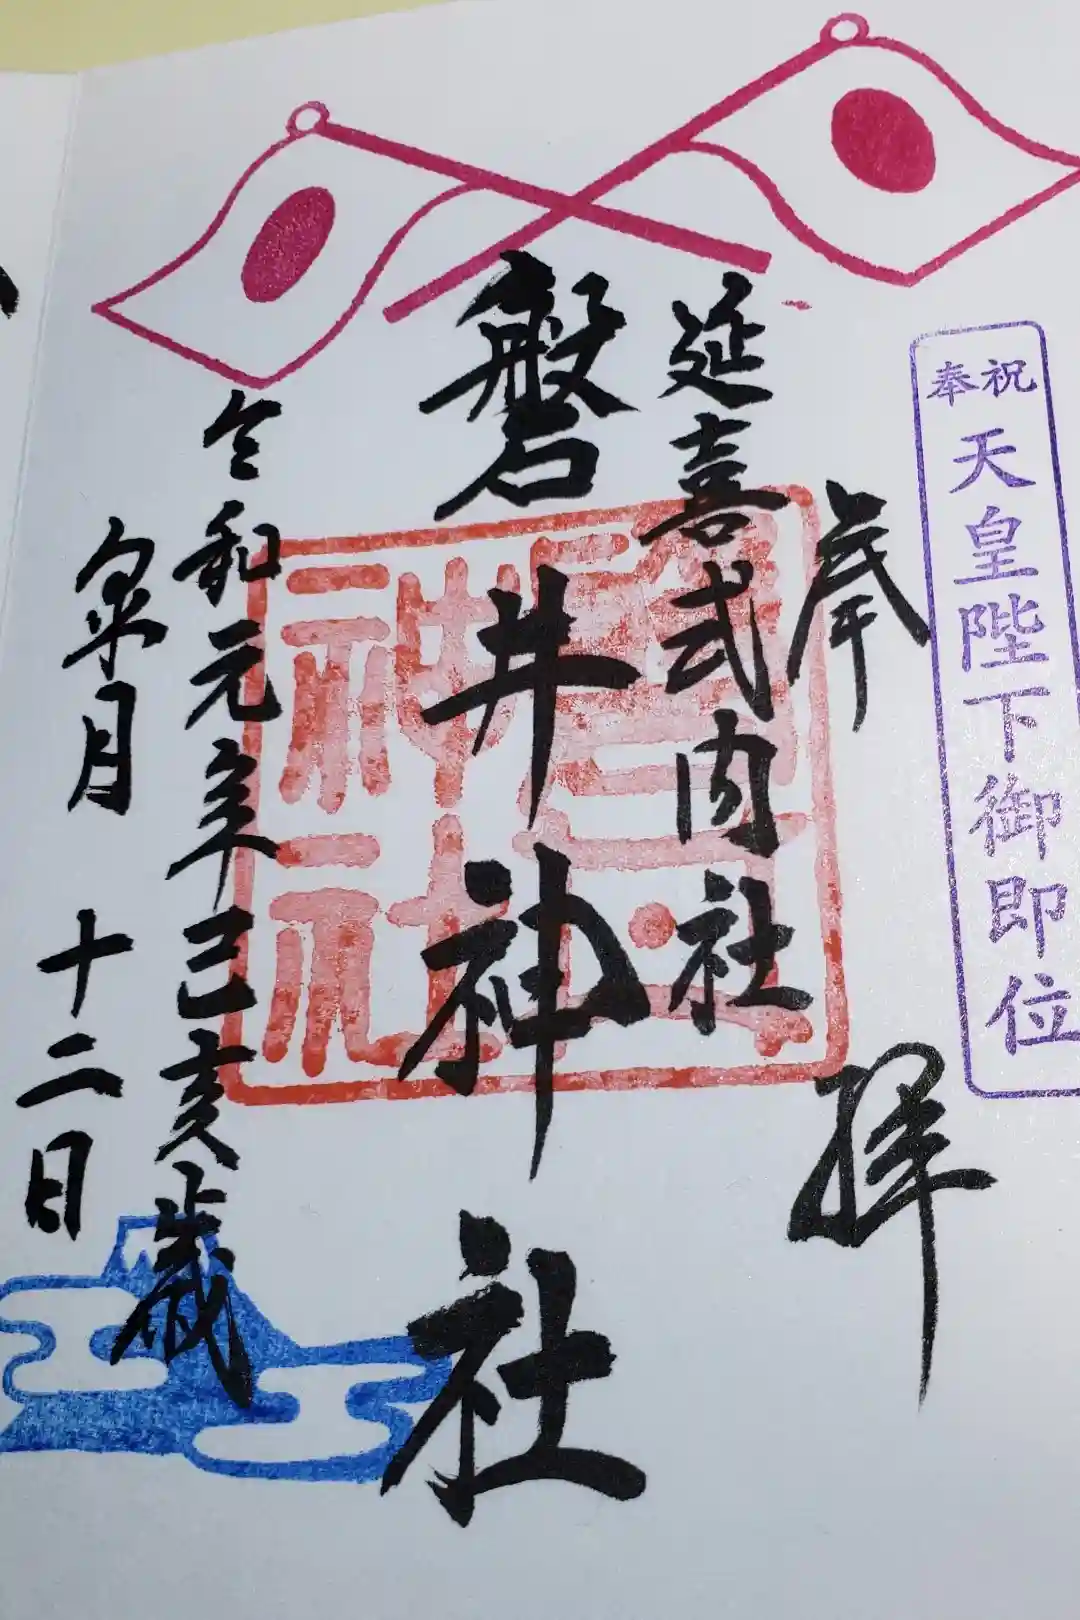 奉祝
天皇陛下御即位
奉拝
延喜式内社
磐井神社
令和元年己亥歳
皐月 十二日
磐井
神社